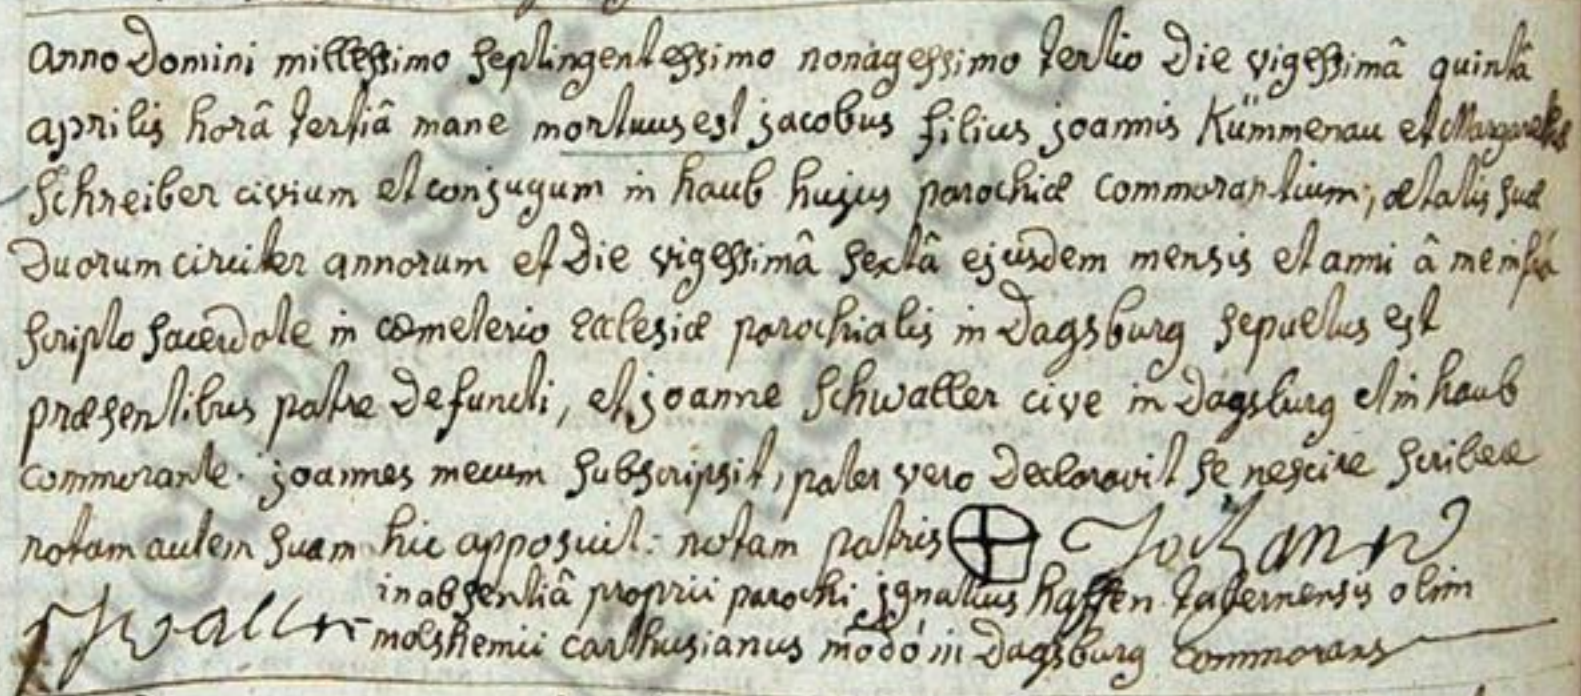 anno Domini millessimo septingentessimo nonagessimo tertio Die vigessimâ quintâ
aprilis horâ tertiâ mane mortuus est jacobus filius joannis Kümmenau et Margarethæ
Schreiber civium et conjugum in haub hujus parochiæ commorantium, ætatis suæ
Duorum circiter annorum et Die vigessimâ sextâ ejusdem mensis et anni â me infrá
scripto sacerdote in cœmeterio Ecclesiæ parochialis in Dagsburg sepultus est
præsentibus patre Defuncti, et joanne Schwaller cive in Dagsburg et in haub
commorante. joannes mecum subscripsit, pater vero Declaravit se nescire scribere
notam autem suam hic apposuit. notam patris Johann
Schwaller in absentiâ proprii parochi jgnatius haffen tabernensis olim
molshemii carthusianus modó in Dagsburg commorans